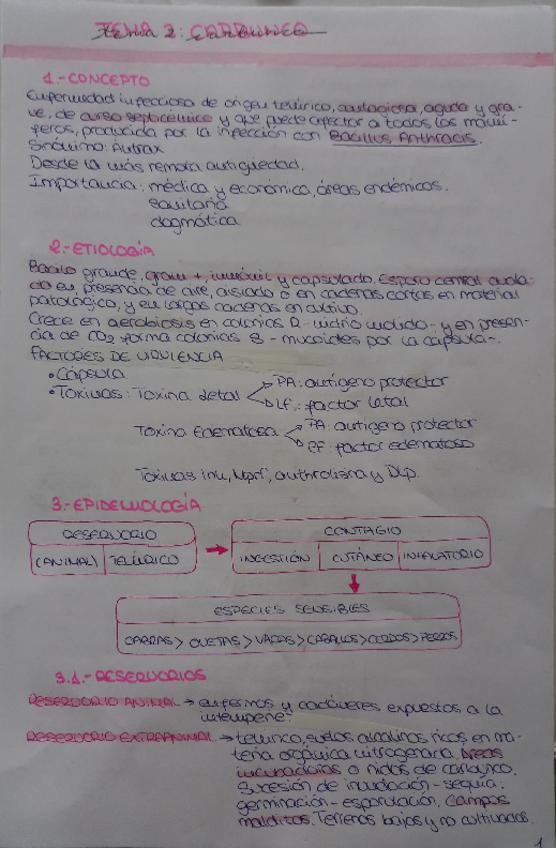 TEMA 2: CARBUNCO
1.- CONCEPTO
Enfermedad infecciosa de origen telúrico, contagiosa, aguda y gra-
ve, de curso septicémico y que puede afectar a todos los mamí-
feros, producida por la infección con Bacillus Anthracis.
Sinónimo: Antrax
Desde la más remota antigüedad.
Importancia: médica y económica, áreas endémicas.
sanitaria
dogmática
2.- ETIOLOGÍA
Bacilo grande, gram +, inmóvil y capsulado. Esporo central ovala-
do en presencia de aire, aislado o en cadenas cortas en material
patológico, y en largas cadenas en cultivo.
Crece en aerobiosis en colonias R - vidrio molido - y en presen-
cia de CO2 forma colonias S - mucoides por la cápsula -.
FACTORES DE VIRULENCIA
• Cápsula
• Toxinas: Toxina letal PA: antígeno protector
LF: factor letal
Toxina Edematosa PA: antígeno protector
EF: factor edematoso
Toxinas inh, Npr, anthrolisina y
3.- EPIDEMIOLOGÍA
RESERVORIO
(ANIMAL) TELÚRICO
CONTAGIO
INGESTIÓN CUTÁNEO INHALATORIO
ESPECIES SENSIBLES
CABRAS > OVEJAS > VACAS > CABALLOS > CERDOS > PERROS
3.1.- RESERVORIOS
RESERVORIO ANIMAL → enfermos y cadáveres expuestos a la
intemperie.
RESERVORIO EXTRAANIMAL → telúrico, suelos alcalinos ricos en ma-
teria orgánica nitrogenada. Áreas
incubadoras o nidos de carbunco.
Sucesión de inundación - sequía:
germinación - esporulación. Campos
malditos. Terrenos bajos y no cultivados.
1